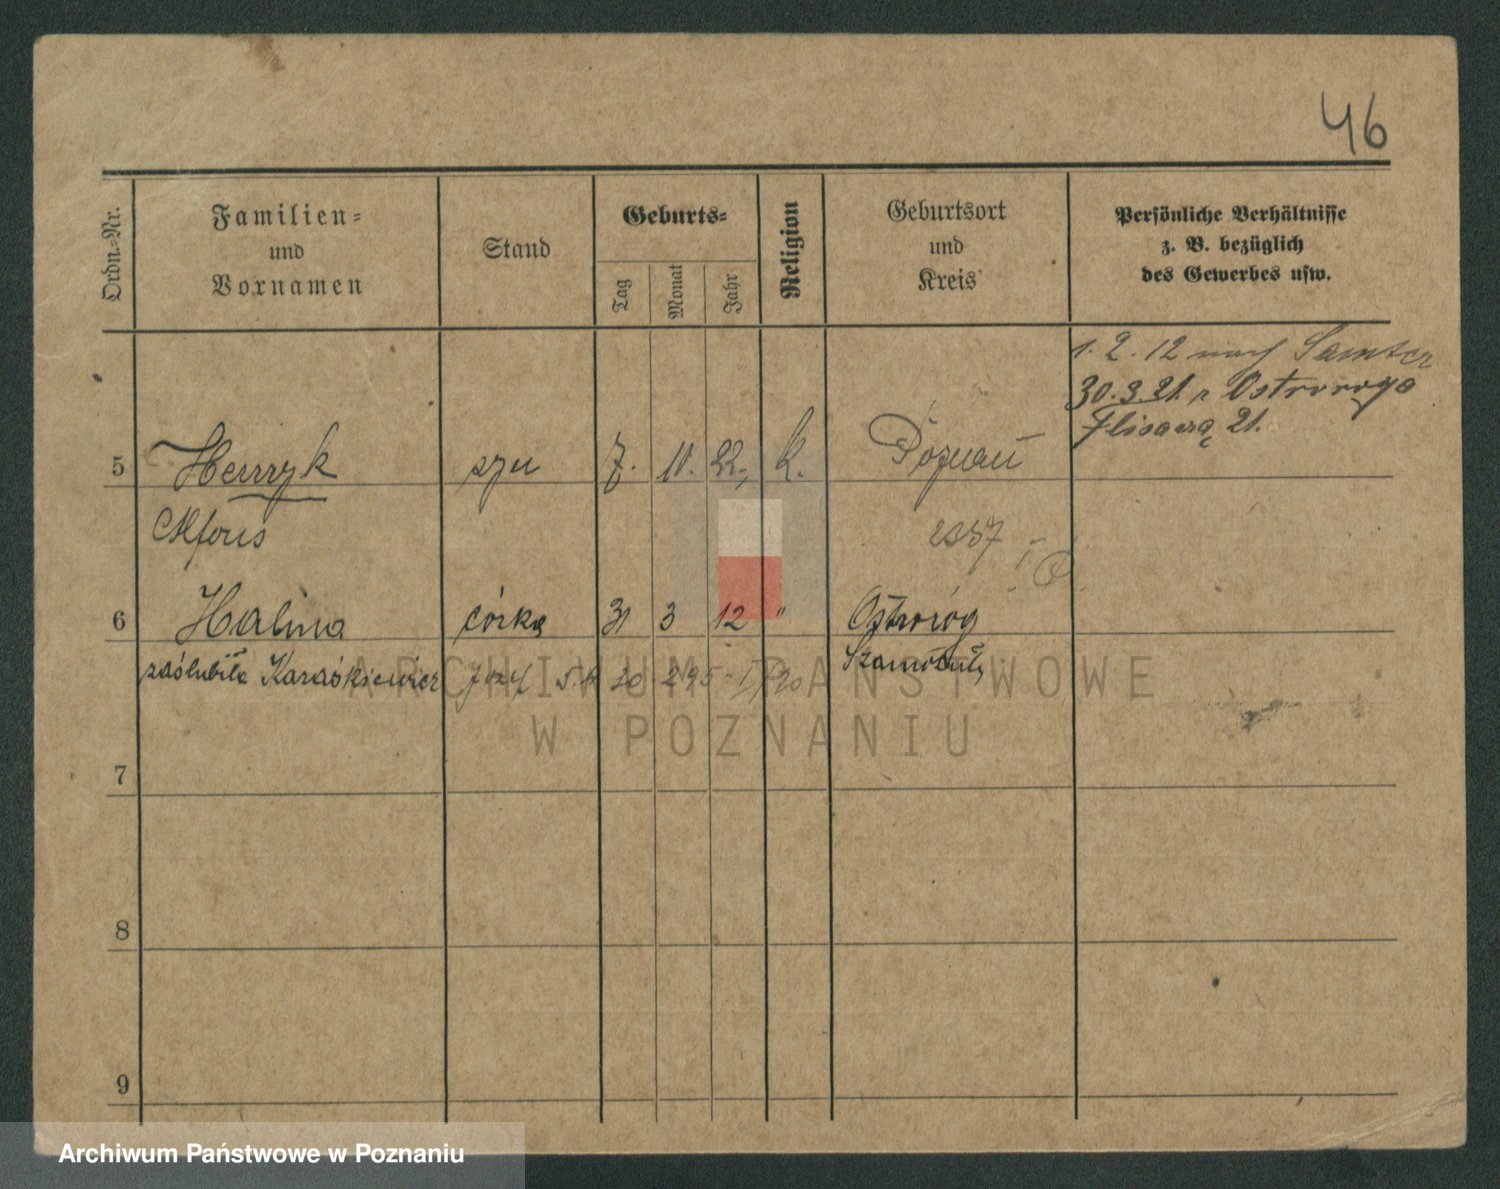 46
Ordn.=Nr.
Familien=
und
Vornamen
Stand
Geburts=
Tag
Monat
Jahr
Religion
Geburtsort
und
Kreis
Persönliche Verhältnisse
z. B. bezüglich
des Gewerbes usw.
1. 2. 12 nach Samter
30. 3. 21. z Ostroroga
21.
5 Henryk syn 7. 10. 22, k. Poznań
Alfons
6 Halina córka 31 3 12 " Ostroróg
zaślubiła Karaśkiewicz Józef
Szamotuły
7
8
9
ARCHIWUM PAŃSTWOWE
W POZNANIU
Archiwum Państwowe w Poznaniu